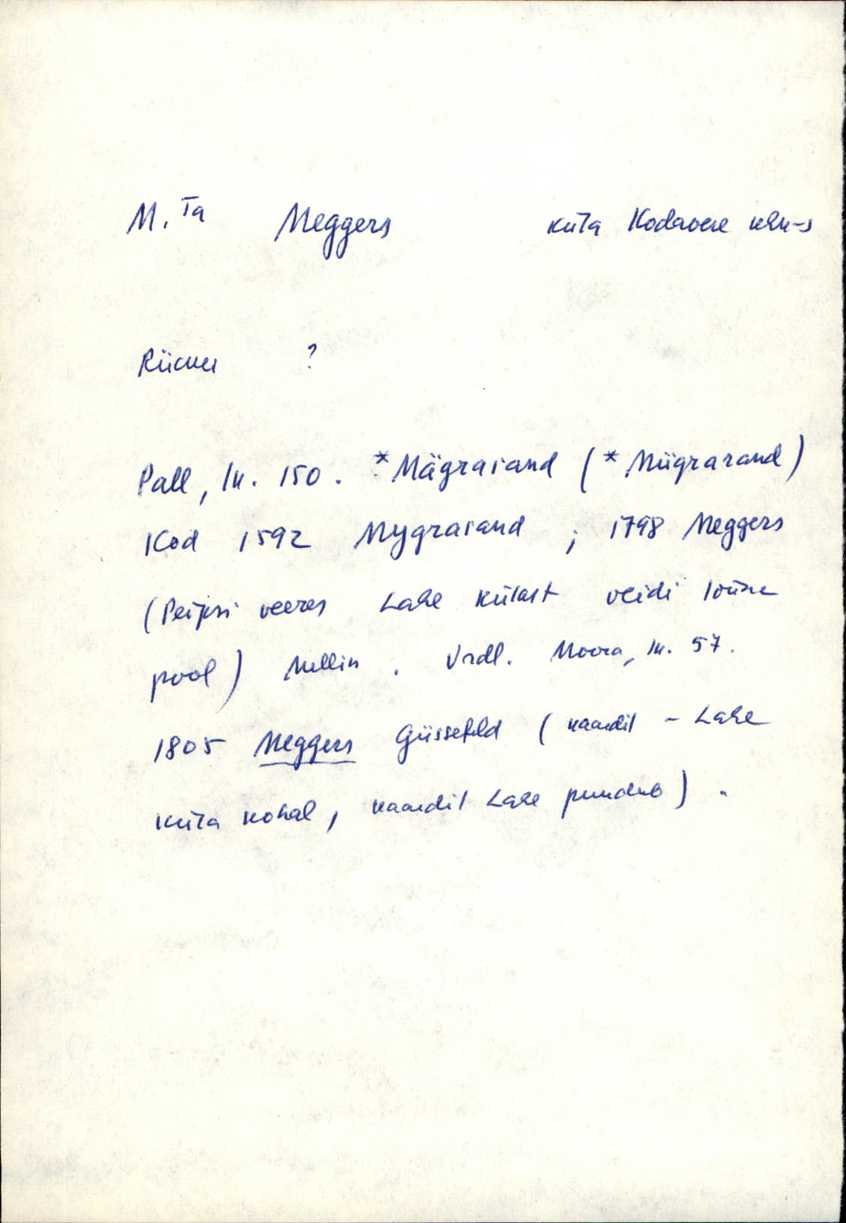 M.Ta Meggers küla Kodavere khk-s
Rücker ?
Pall, lk. 150. *Mägrarand (*Mügrarand)
Kod 1592 Mygrarand ; 1798 Meggers
(Peipsi veeres Lahe külast veidi lõuna
pool) Mellin . Vrdl. Moora, lk. 57.
1805 Meggers Güssefeld (kaardil - Lahe
küla kohal, kaardil Lahe puudub) .